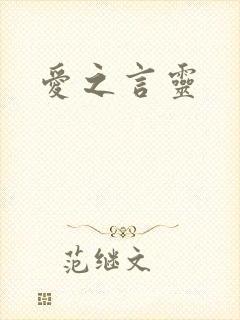 愛之言靈
范继文